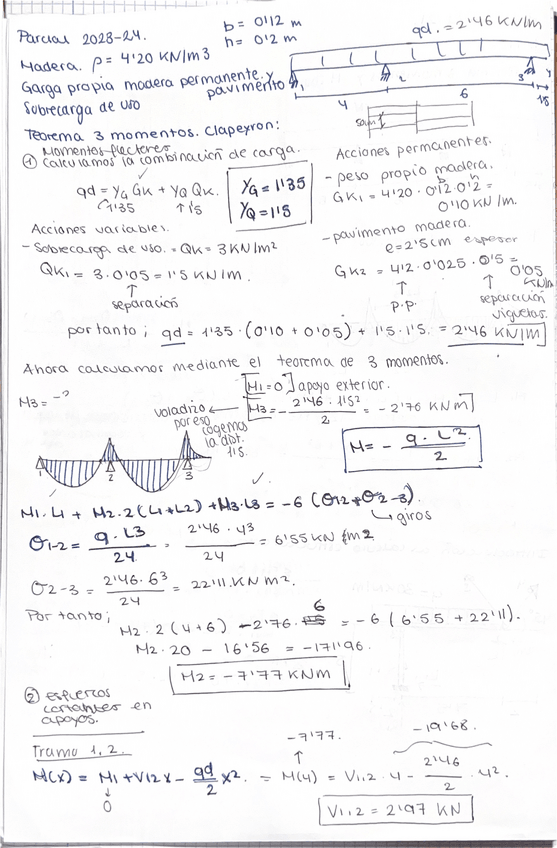 Parcial 2023-24.
b = 0'12 m
h = 0'2 m
qd. = 2'46 KN/m
Madera. ρ = 4'20 KN/m3
Carga propia madera permanente y
pavimento
Sobrecarga de uso
1 2 3
4 6 1'5
50cm
Teorema 3 momentos. Clapeyron:
Momentos flectores
① Calculamos la combinación de carga.
qd = γG GK + γQ QK.
1'35 1'5
γG = 1'35
γQ = 1'5
Acciones variables.
- Sobrecarga de uso. = QK = 3 KN/m²
QK1 = 3 · 0'05 = 1'5 KN/m.
separación
Acciones permanentes.
- peso propio madera.
b h
GK1 = 4'20 · 0'12 · 0'2 =
0'10 KN/m.
- pavimento madera.
e = 2'5cm espesor
GK2 = 4'2 · 0'025 · 0'5 = 0'05 KN/m
p.p.
separación
viguetas.
por tanto ; qd = 1'35 · (0'10 + 0'05) + 1'5 · 1'5. = 2'46 KN/M
Ahora calculamos mediante el teorema de 3 momentos.
M3 = -?
[M1 = 0] apoyo exterior.
M3 = - 2'46 · 1'5² / 2 = -2'76 KNm
voladizo
por eso
cogemos
la dist.
1'5.
M = - q · L² / 2
1 2 3
M1 · L1 + M2 · 2 (L1 + L2) + M3 · L3 = -6 (θ12 + θ2-3).
giros
θ1-2 = q · L3 / 24 = 2'46 · 43 / 24 = 6'55 KN m2
θ2-3 = 2'46 · 63 / 24 = 22'11 . KN m².
Por tanto ;
M2 · 2 (4+6) - 2'76 · 6 = -6 (6'55 + 22'11).
M2 · 20 - 16'56 = -171'96.
M2 = -7'77 KNm
② esfuerzos
cortantes en
apoyos.
Tramo 1,2.
-7'77. -19'68.
M(x) = M1 + V12 x - qd/2 x². = M(4) = V1,2 · 4 - 2'46/2 · 4².
0
V1,2 = 2'97 KN